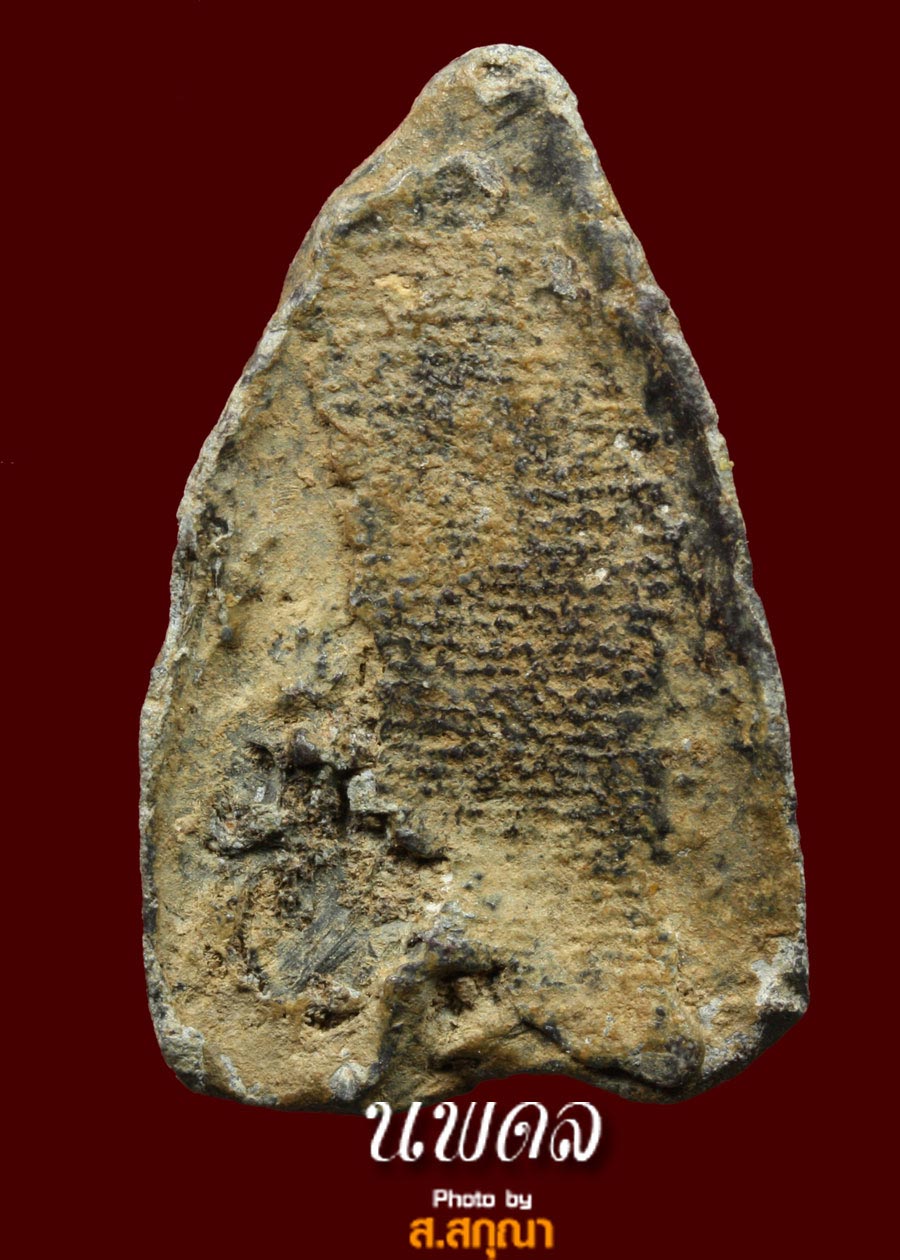 นพดล
Photo by
ส.สกุณา